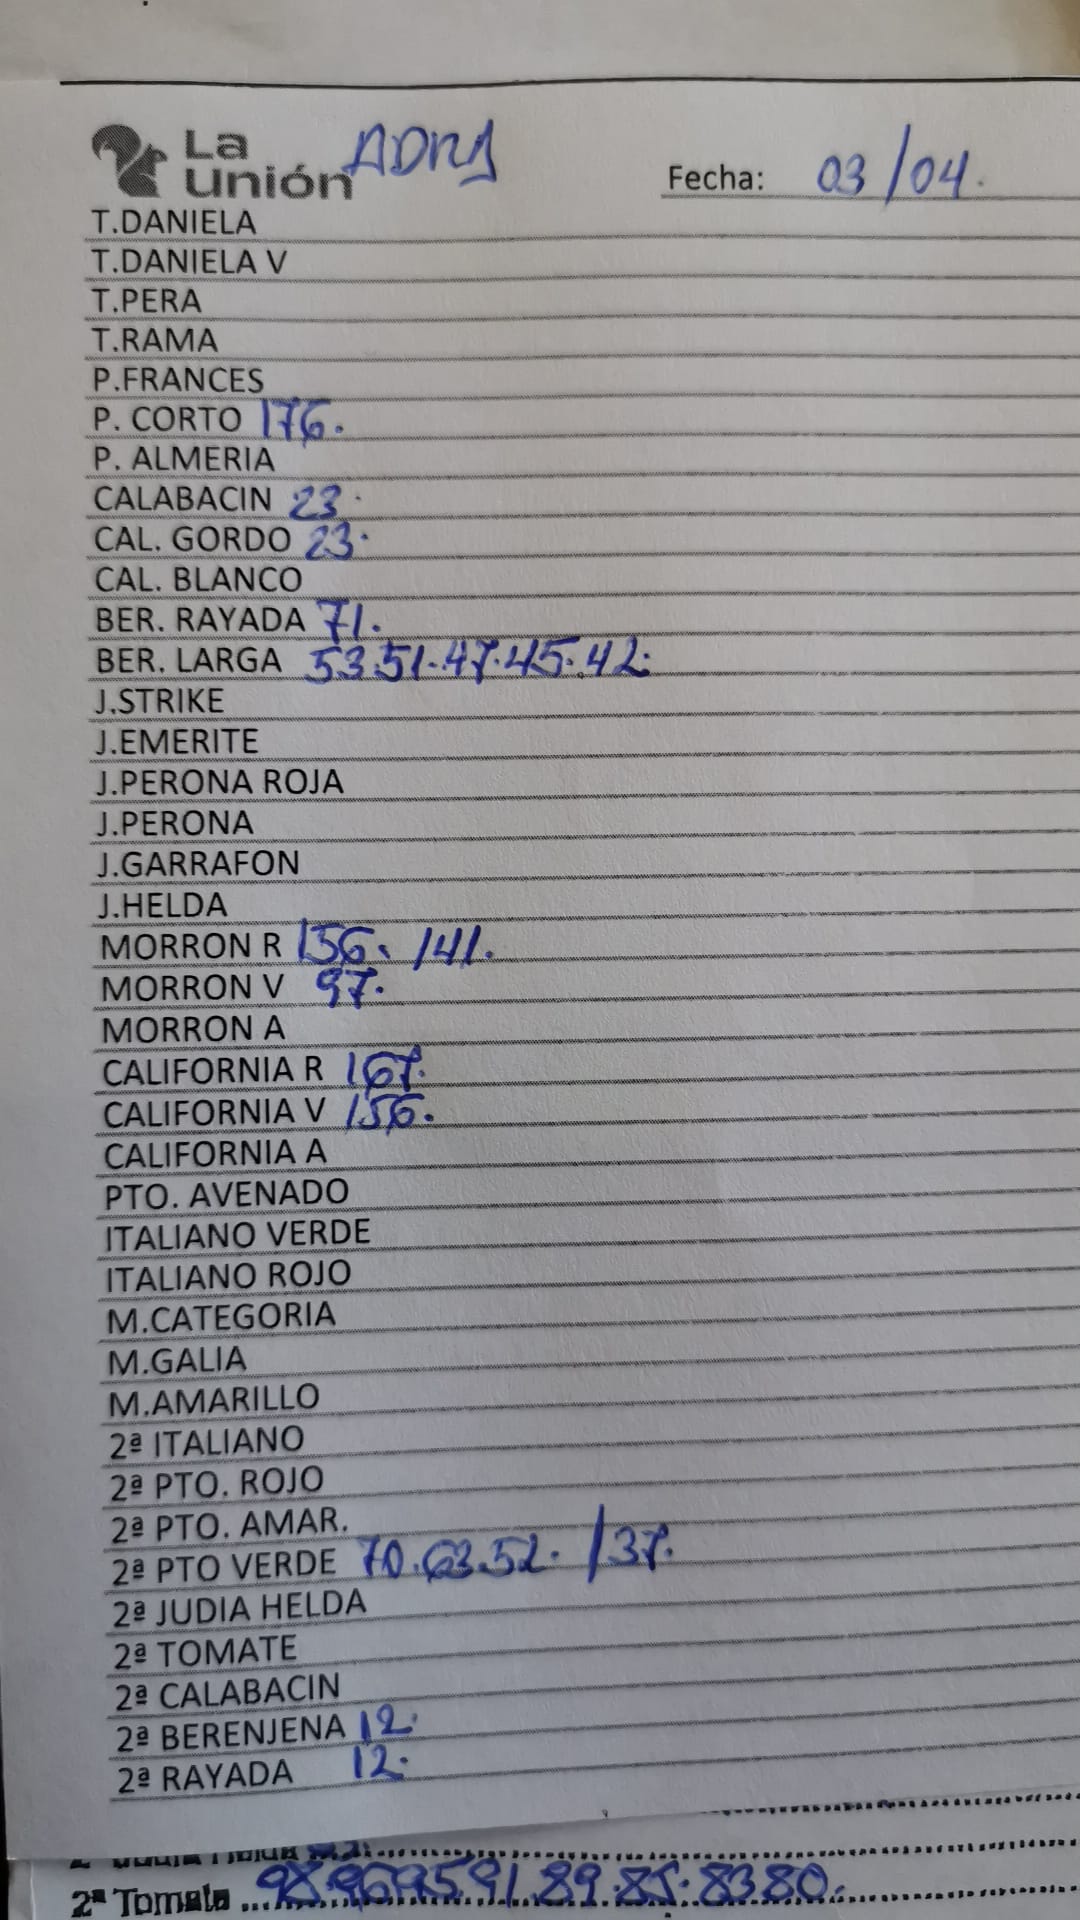 La
unión
ADRA
Fecha: 03/04.
T.DANIELA
T.DANIELA V
T.PERA
T.RAMA
P.FRANCES
P. CORTO 176.
P. ALMERIA
CALABACIN 23.
CAL. GORDO 23.
CAL. BLANCO
BER. RAYADA 71.
BER. LARGA 53.51.47.45.42.
J.STRIKE
J.EMERITE
J.PERONA ROJA
J.PERONA
J.GARRAFON
J.HELDA
MORRON R 156. /141.
MORRON V 97.
MORRON A
CALIFORNIA R 167.
CALIFORNIA V 156.
CALIFORNIA A
PTO. AVENADO
ITALIANO VERDE
ITALIANO ROJO
M.CATEGORIA
M.GALIA
M.AMARILLO
2ª ITALIANO
2ª PTO. ROJO
2ª PTO. AMAR.
2ª PTO VERDE 70.63.52. /37.
2ª JUDIA HELDA
2ª TOMATE
2ª CALABACIN
2ª BERENJENA 12.
2ª RAYADA 12.
2ª Tomate 98.96.95.91.89.85.83.80.